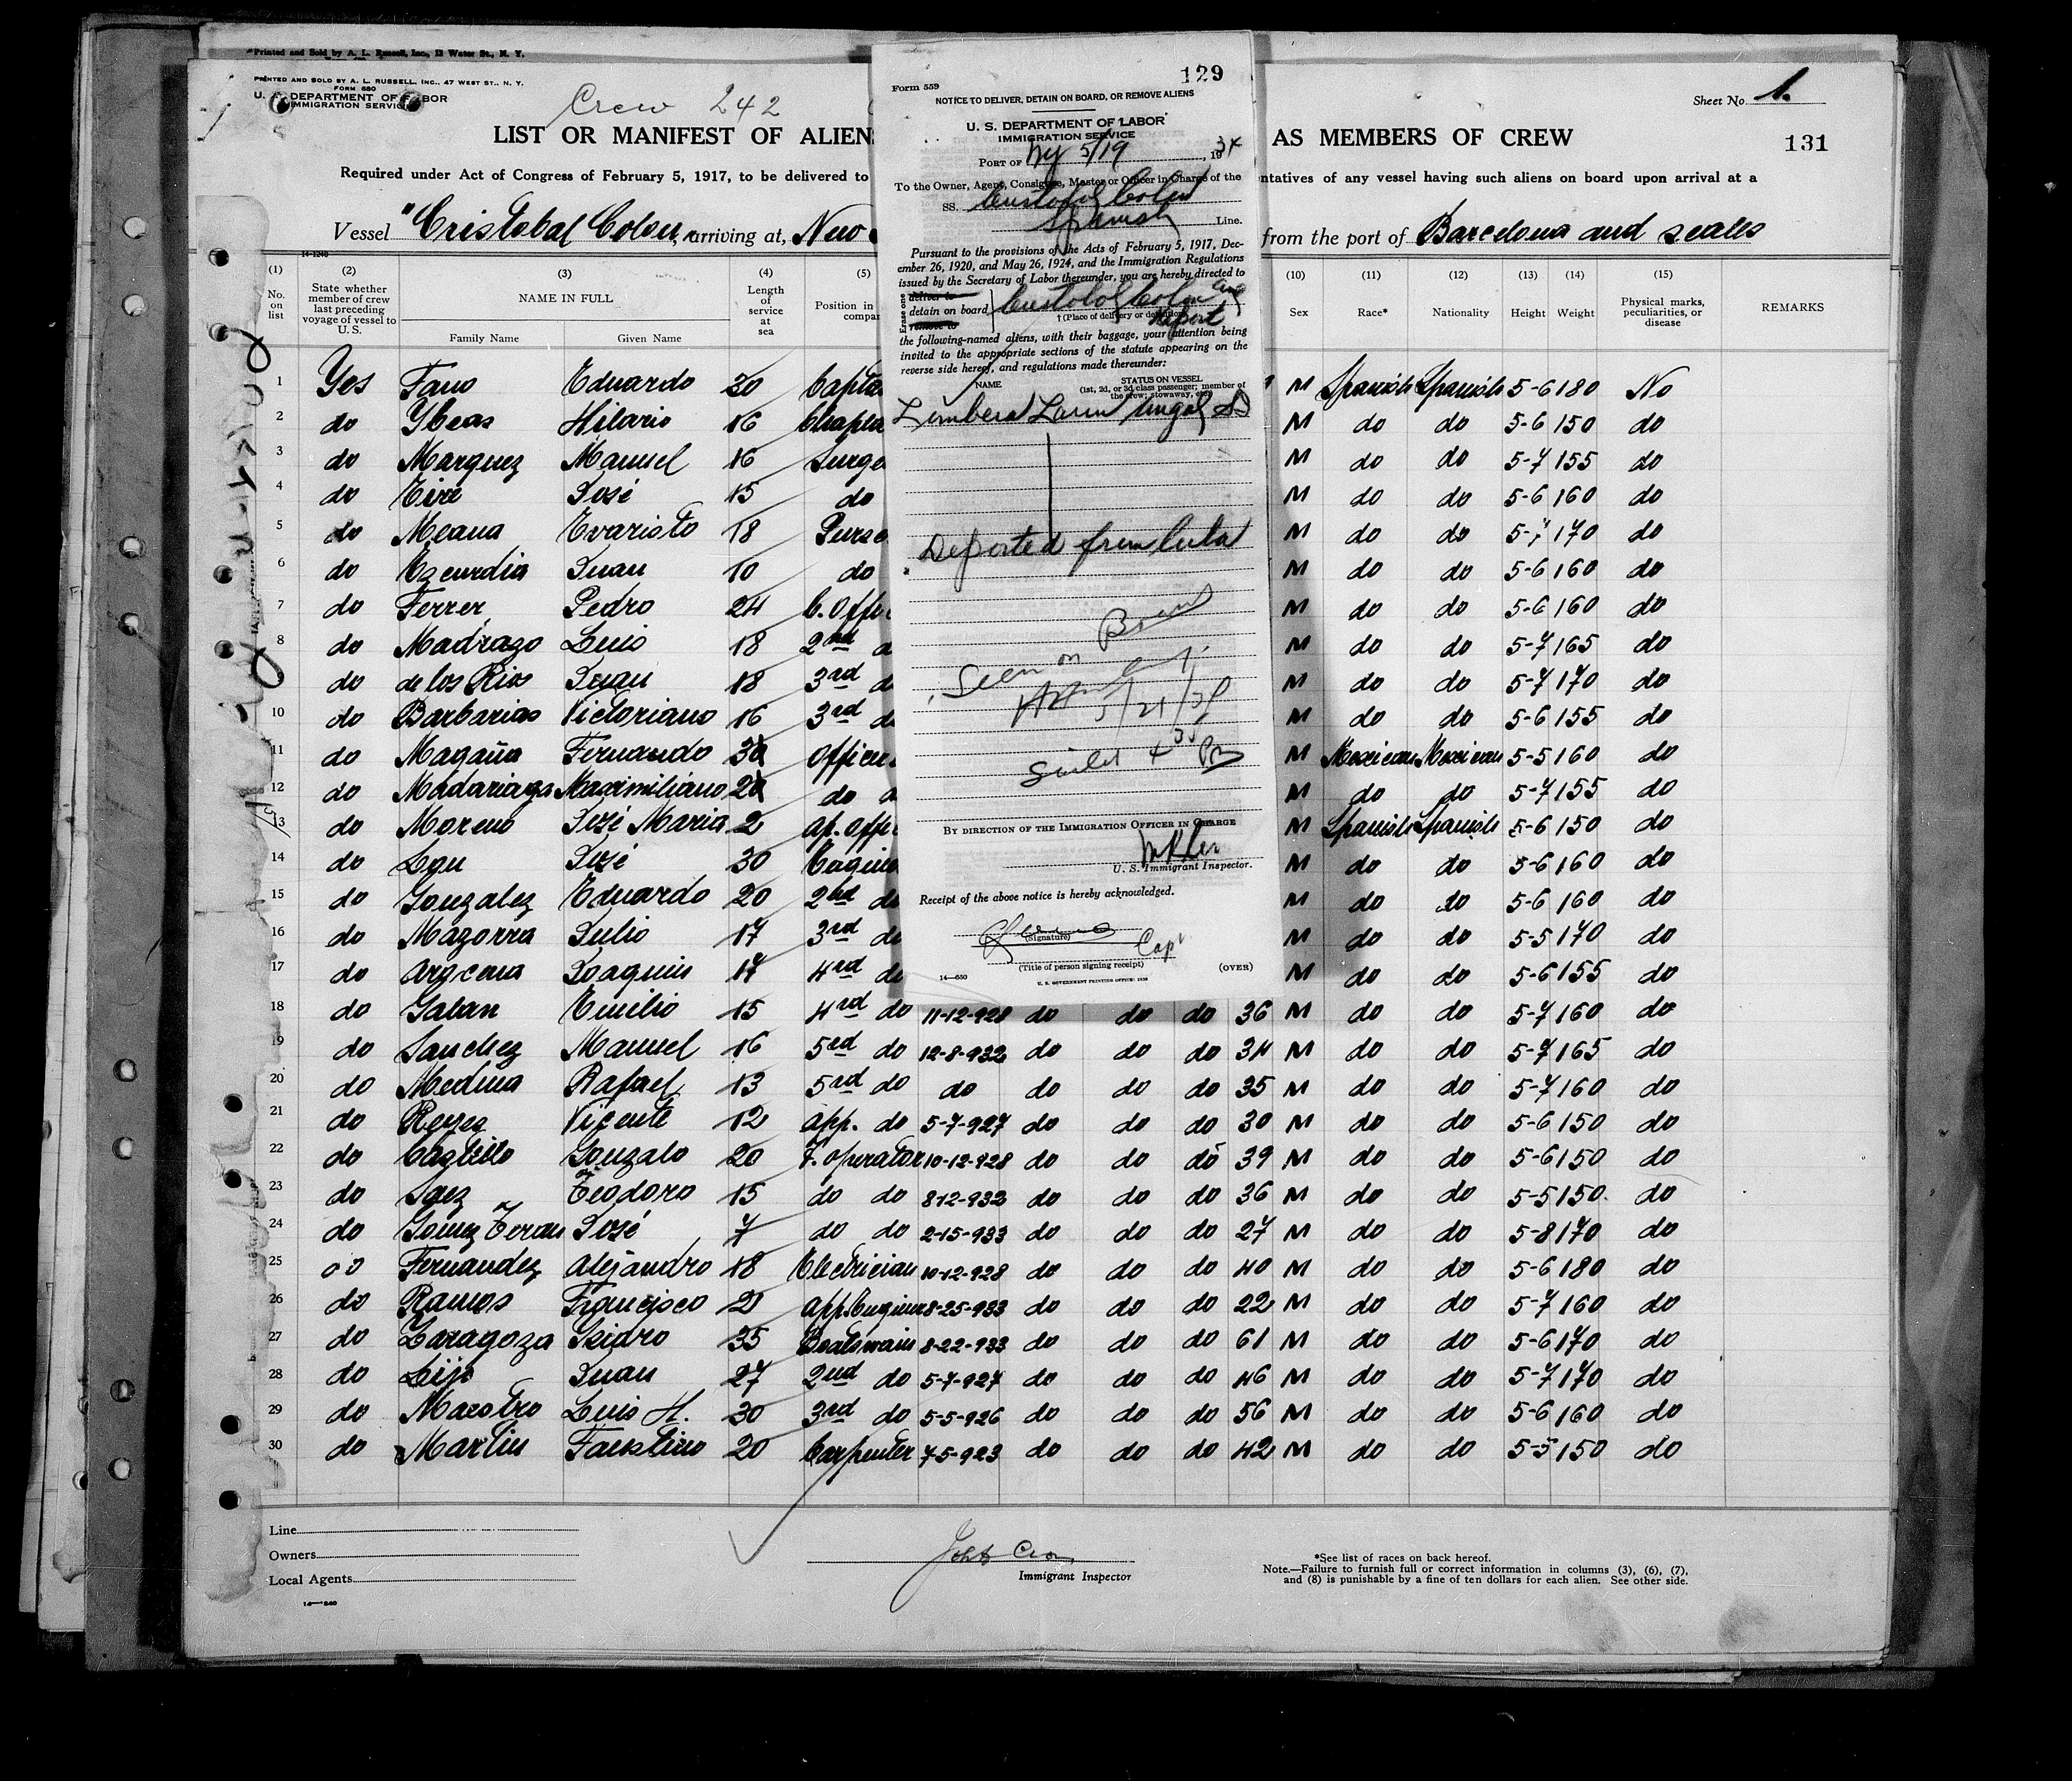 Printed and Sold by A. L. Russell, Inc., 13 Water St., N. Y.
PRINTED AND SOLD BY A. L. RUSSELL, INC., 47 WEST ST., N. Y.
FORM 680
U. S. DEPARTMENT OF LABOR
IMMIGRATION SERVICE
Crew 242
LIST OR MANIFEST OF ALIEN
AS MEMBERS OF CREW
Sheet No. 1.
131
Required under Act of Congress of February 5, 1917, to be delivered to
ntatives of any vessel having such aliens on board upon arrival at a
Vessel "Cristobal Colon", arriving at, New
from the port of Barcelona and scales
14-1240
(1) (2) (3) (4) (5) (10) (11) (12) (13) (14) (15)
No. on list
State whether member of crew last preceding voyage of vessel to U. S.
NAME IN FULL
Family Name Given Name
Length of service at sea
Position in compa
Sex Race* Nationality Height Weight
Physical marks, peculiarities, or disease
REMARKS
1 Yes Fano Eduardo 30 Capta M Spanish Spanish 5-6 180 No
2 do Ybeas Hilario 16 Chapla M do do 5-6 150 do
3 do Marquez Manuel 16 Surge M do do 5-7 155 do
4 do José 15 do M do do 5-6 160 do
5 do Meana Evaristo 18 Purse M do do 5-7 170 do
6 do Ezcurdia Juan 10 do M do do 5-6 160 do
7 do Ferrer Pedro 24 C. Offi M do do 5-6 160 do
8 do Madrazo Luis 18 2nd d M do do 5-7 165 do
9 do de los Rios Juan 18 3rd d M do do 5-7 170 do
10 do Barbarias Victoriano 16 3rd d M do do 5-6 155 do
11 do Magaña Fernando Officer M Mexican Mexican 5-5 160 do
12 do Madariaga Maximiliano do d M do do 5-7 155 do
13 do Moreno José Maria 2 ap. offi M Spanish Spanish 5-6 150 do
14 do José 30 Engine M do do 5-6 160 do
15 do Gonzalez Eduardo 20 2nd do M do do 5-6 160 do
16 do Mazorra Julio 17 3rd do M do do 5-5 170 do
17 do Joaquin 17 4rd do M do do 5-6 155 do
18 do Galan Emilio 15 4rd do 11-12-928 do do do 36 M do do 5-7 160 do
19 do Sanchez Manuel 16 5rd do 12-8-932 do do do 34 M do do 5-7 165 do
20 do Medina Rafael 13 5rd do do do do do 35 M do do 5-7 160 do
21 do Reyes Vicente 12 app. do 5-7-927 do do do 30 M do do 5-6 150 do
22 do Castillo Gonzalo 20 T. operator 10-12-928 do do do 39 M do do 5-6 150 do
23 do Saez Teodoro 15 do do 8-12-932 do do do 36 M do do 5-5 150 do
24 do Gomez Teran José 7 do do 2-15-933 do do do 27 M do do 5-8 170 do
25 do Fernandez Alejandro 18 Electrician 10-12-928 do do do 40 M do do 5-6 180 do
26 do Ramos Francisco 2 app. Engineer 8-25-933 do do do 22 M do do 5-7 160 do
27 do Zaragoza Isidro 35 Boatswain 8-22-933 do do do 61 M do do 5-6 170 do
28 do Lijo Juan 27 2nd do 5-7-927 do do do 46 M do do 5-7 170 do
29 do Maestro Luis H. 30 3rd do 5-5-926 do do do 56 M do do 5-6 160 do
30 do Martin Faustino 20 Carpenter 7-5-923 do do do 42 M do do 5-5 150 do
Line
Owners
Local Agents
14-1240
Immigrant Inspector
*See list of races on back hereof.
Note.—Failure to furnish full or correct information in columns (3), (6), (7),
and (8) is punishable by a fine of ten dollars for each alien. See other side.
129
Form 559
NOTICE TO DELIVER, DETAIN ON BOARD, OR REMOVE ALIENS
U. S. DEPARTMENT OF LABOR
IMMIGRATION SERVICE
PORT OF NY 5/19, 1934
To the Owner, Agent, Consignee, Master or Officer in Charge of the
SS. Cristobal Colon
Spanish Line.
Pursuant to the provisions of the Acts of February 5, 1917, Dec-
ember 26, 1920, and May 26, 1924, and the Immigration Regulations
issued by the Secretary of Labor thereunder, you are hereby directed to
Erase one
deliver to
detain on board
remove to
Cristobal Colon and
report
†(Place of delivery or detention)
the following-named aliens, with their baggage, your attention being
invited to the appropriate sections of the statute appearing on the
reverse side hereof, and regulations made thereunder:
NAME
STATUS ON VESSEL
(1st, 2d, or 3d class passenger; member of
the crew; stowaway, etc.)
Deported from Cuba
Seen on Board
5/21/34
Sailed 4 30 Pm
BY DIRECTION OF THE IMMIGRATION OFFICER IN CHARGE
U. S. Immigrant Inspector.
Receipt of the above notice is hereby acknowledged.
(Signature)
Capt
(Title of person signing receipt)
14—650
(OVER)
U. S. GOVERNMENT PRINTING OFFICE: 1933